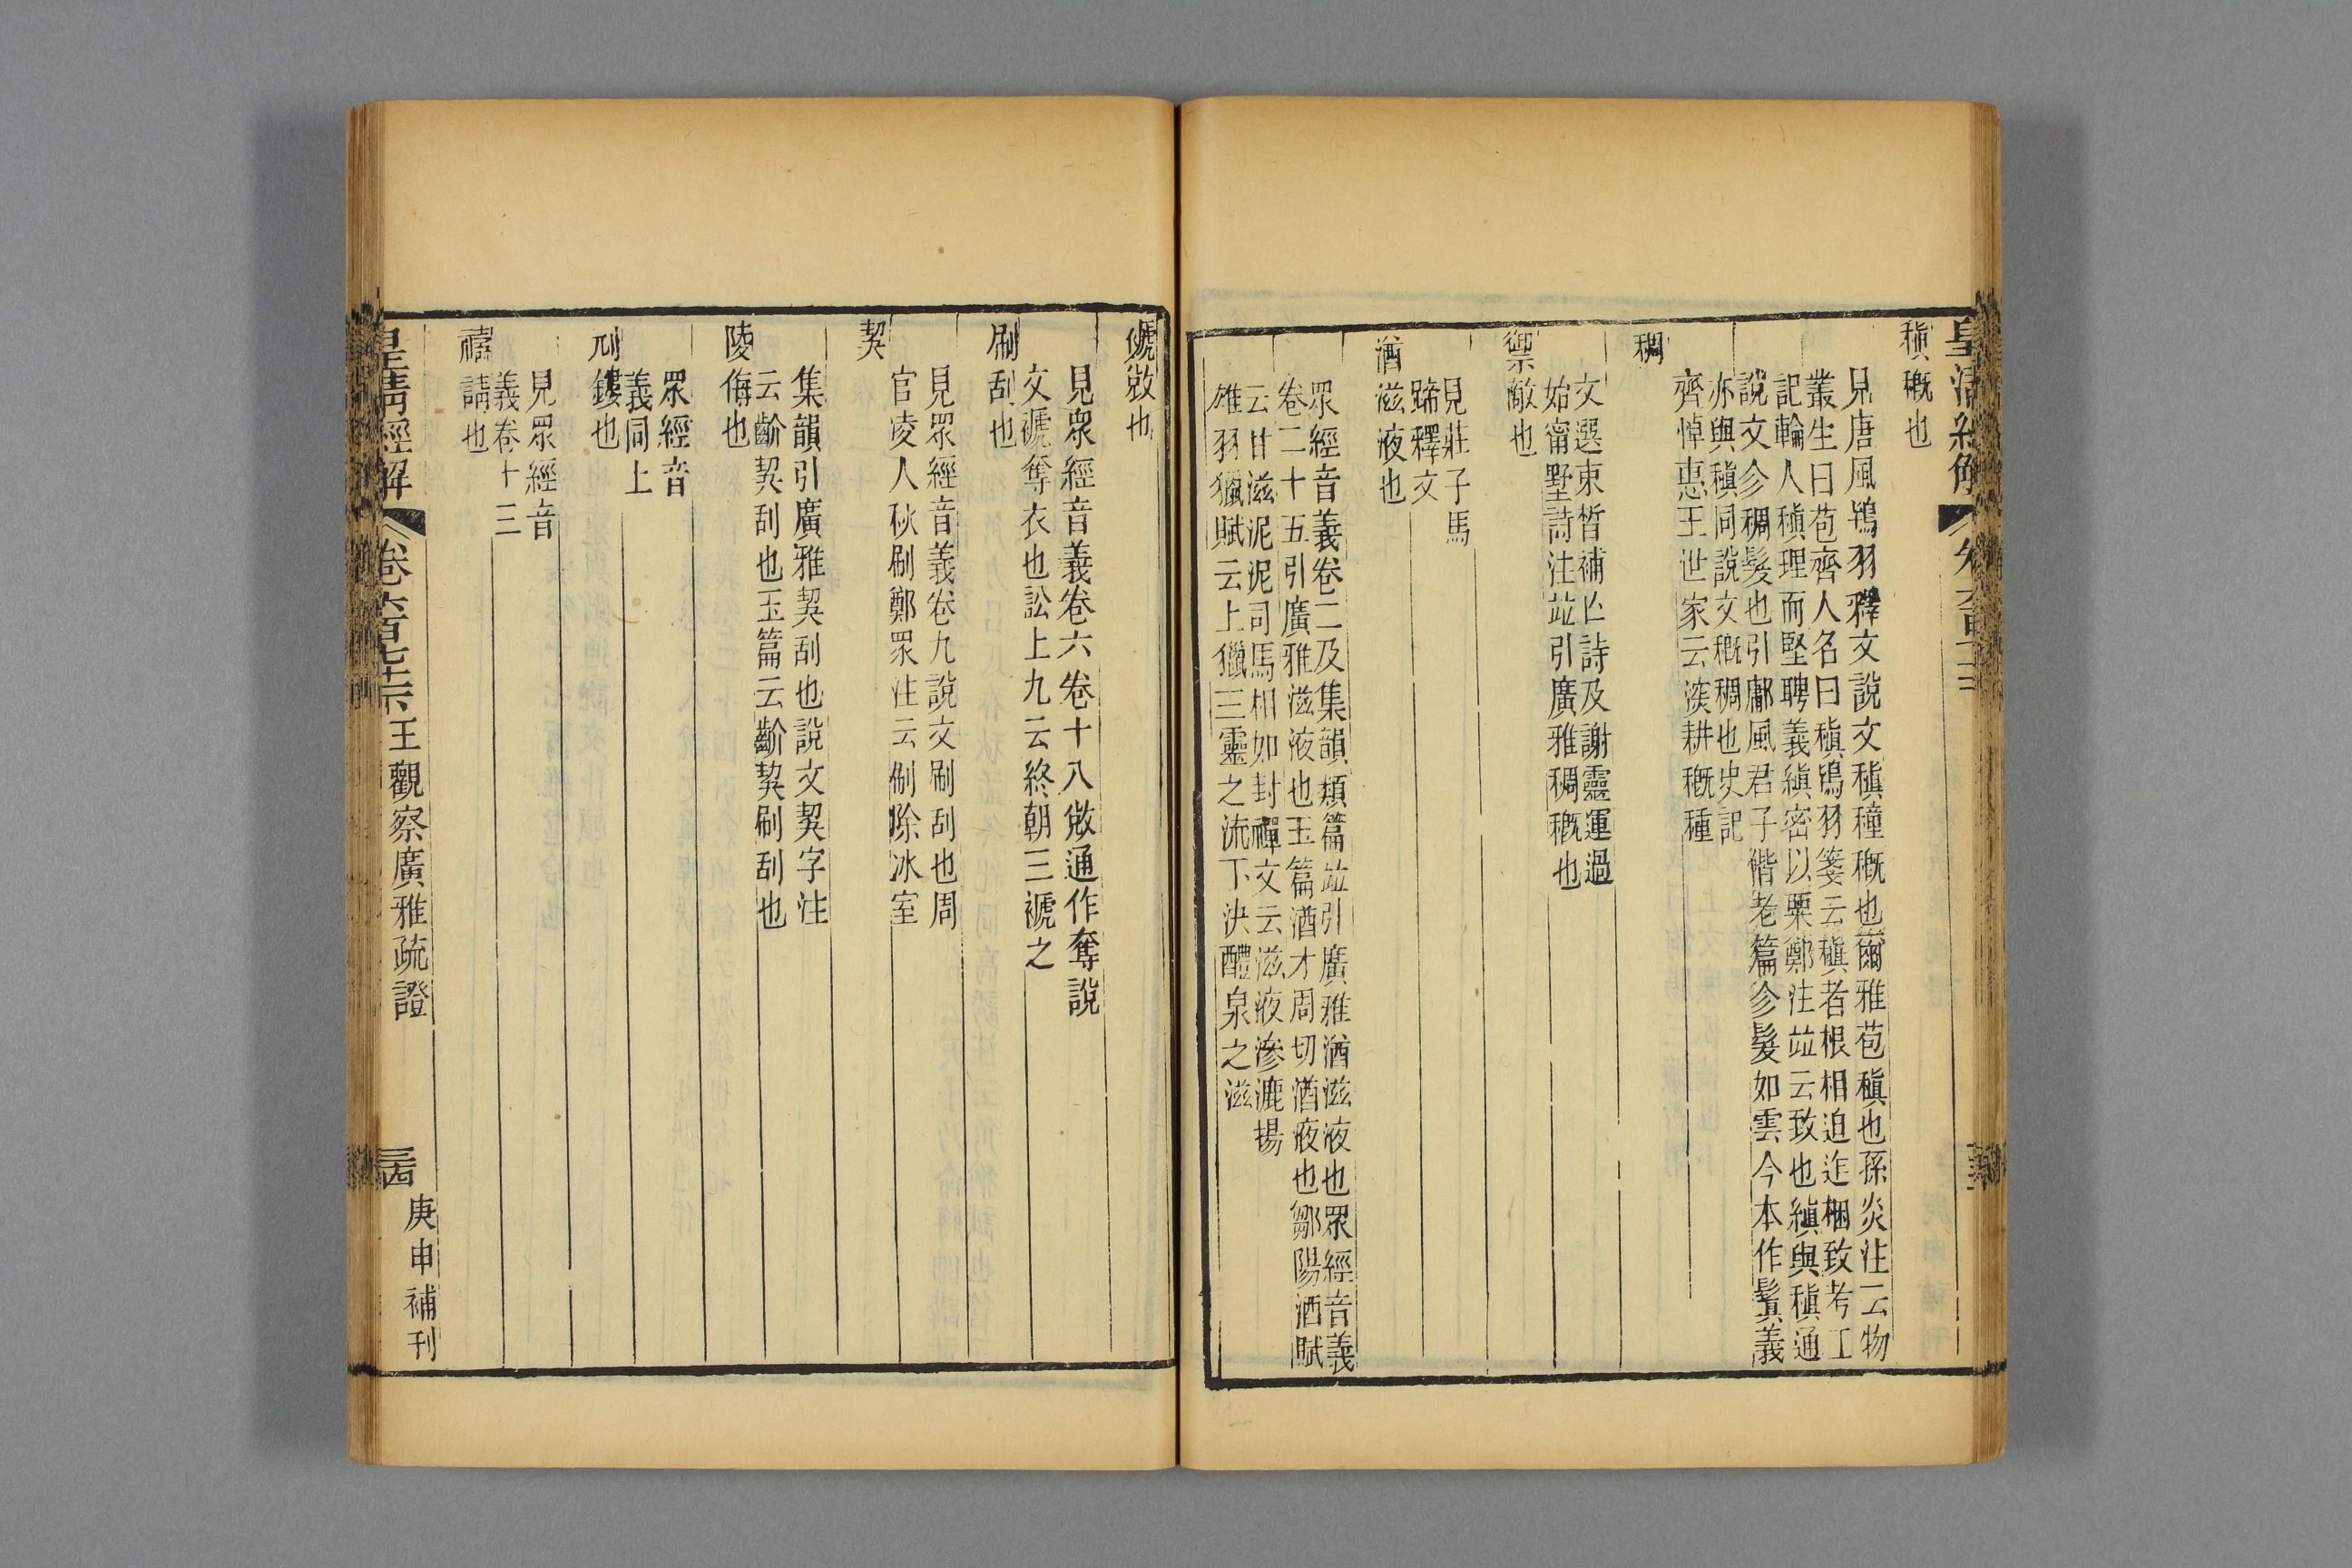 皇清經解
稹穊也
見唐風鴇羽釋文說文稹穜穊也爾雅苞稹也孫炎注云物
叢生曰苞齊人名曰稹鴇羽箋云稹者根相迫迮梱致考工
記輪人稹理而堅聘義縝密以栗鄭注竝云致也縝與稹通
說文㐱稠髮也引鄘風君子偕老篇㐱髮如雲今本作鬒義
亦與稹同說文穊稠也史記
齊悼惠王世家云深耕穊種
稠
文選束皙補亾詩及謝靈運過
始甯墅詩注竝引廣雅稠穊也
禦敵也
見莊子馬
蹄釋文
湭滋液也
眾經音義卷二及集韻類篇竝引廣雅湭滋液也眾經音義
卷二十五引廣雅滋液也玉篇湭才周切湭液也鄒陽酒賦
云甘滋泥泥司馬相如封禪文云滋液滲漉揚
雄羽獵賦云上獵三靈之流下決醴泉之滋
褫敓也
見眾經音義卷六卷十八敓通作奪說
文褫奪衣也訟上九云終朝三褫之
刷刮也
見眾經音義卷九說文刷刮也周
官凌人秋刷鄭眾注云刷除冰室
契
集韻引廣雅契刮也說文契字注
云齘契刮也玉篇云齘契刷刮也
陵侮也
眾經音
義同上
刓鏤也
見眾經音
義卷十三
禱請也
皇清經解
王觀察廣雅疏證
三四
庚申補刊